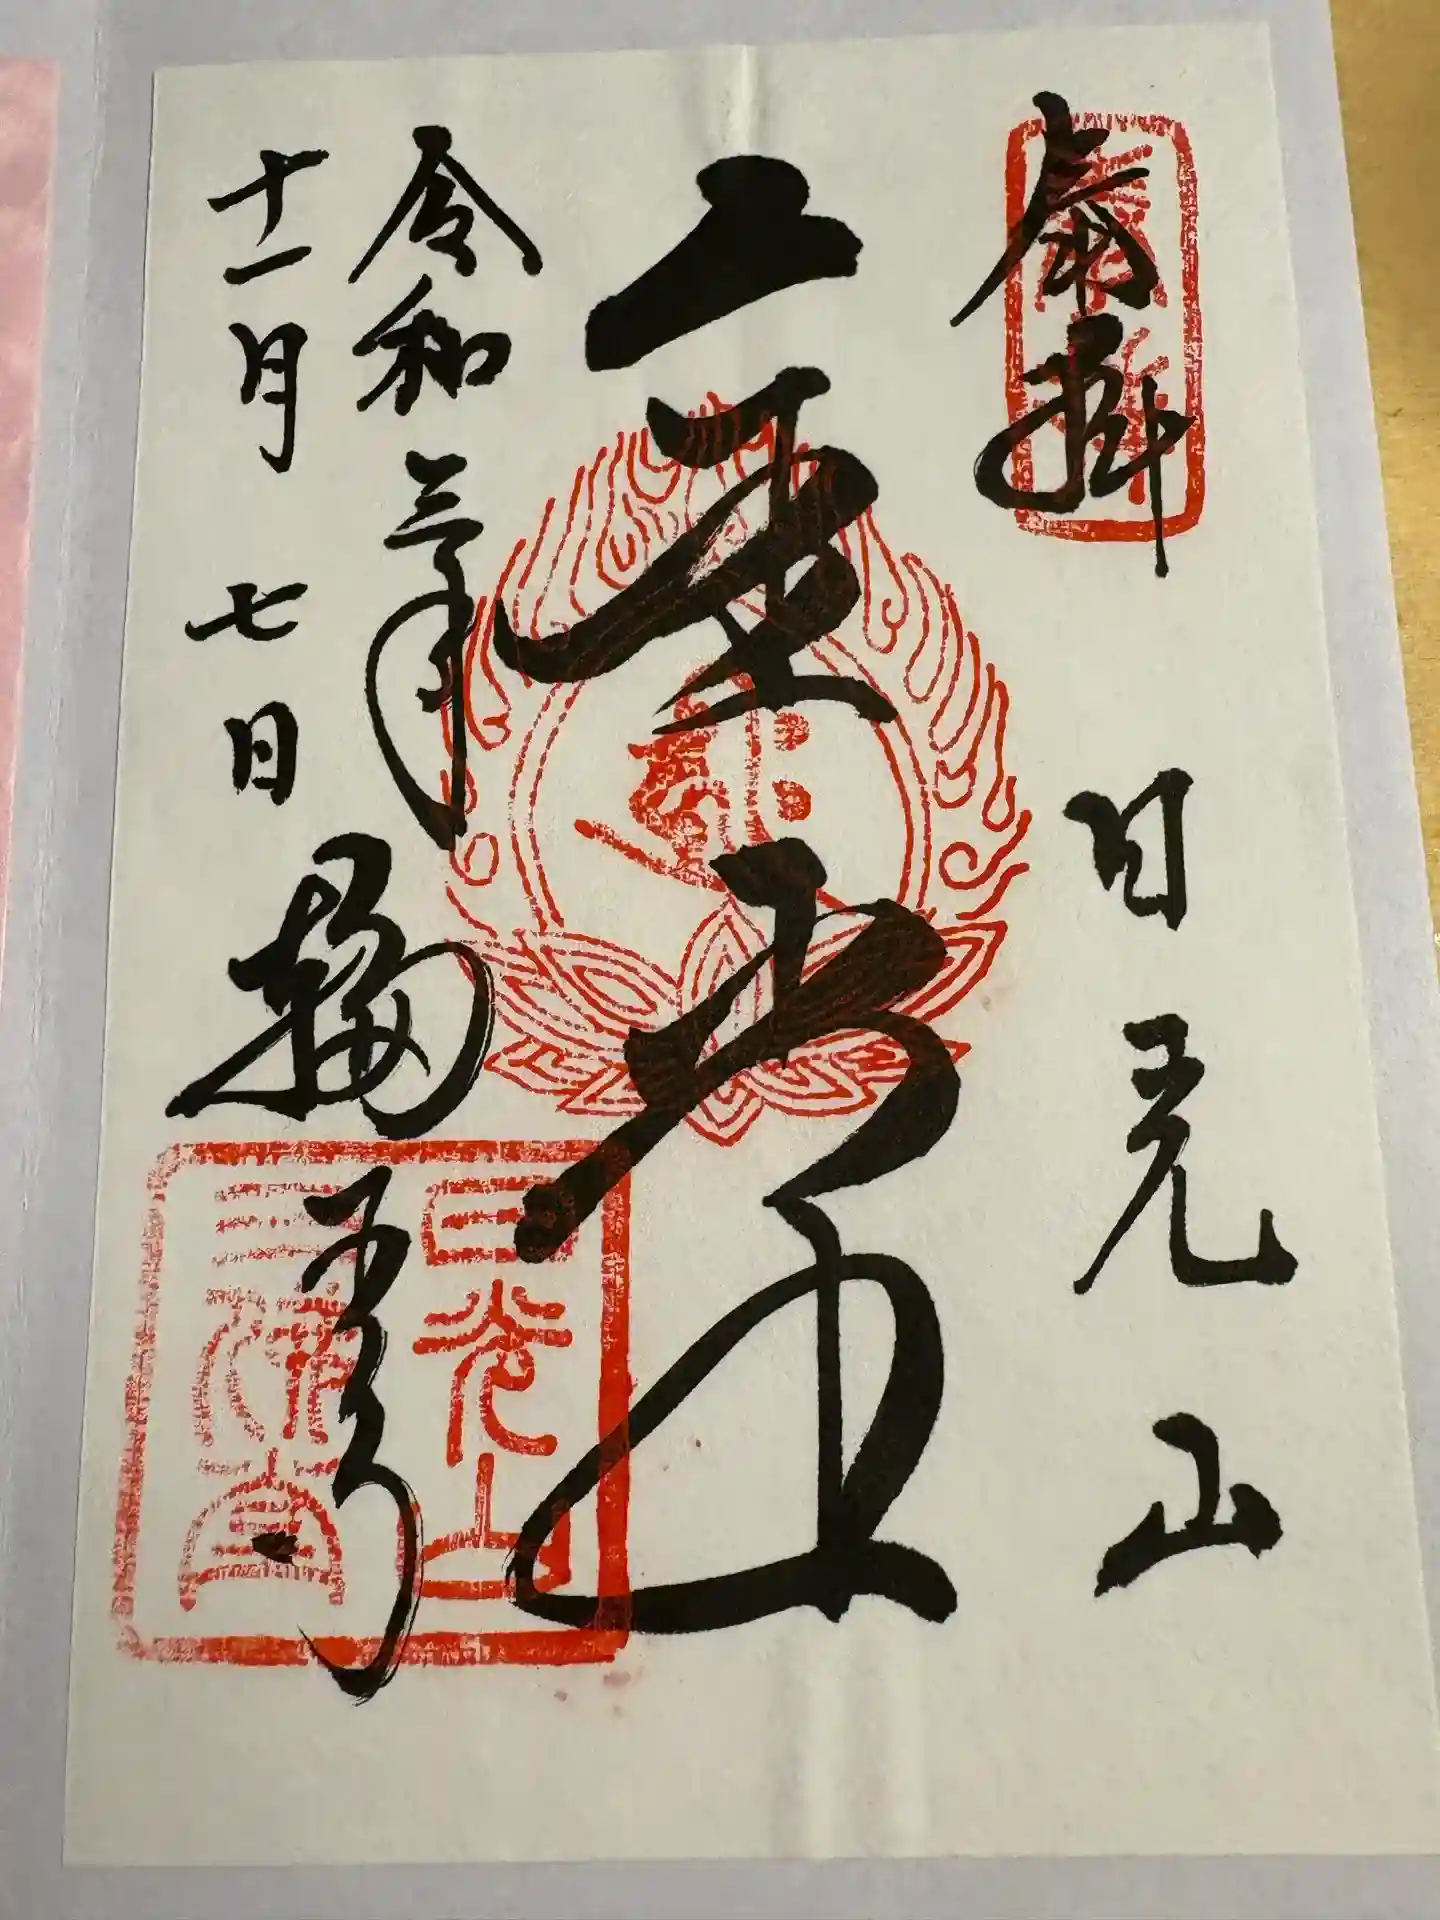 奉拝 日光山
金堂
令和三年
十一月七日
輪王寺
日光山
三佛堂